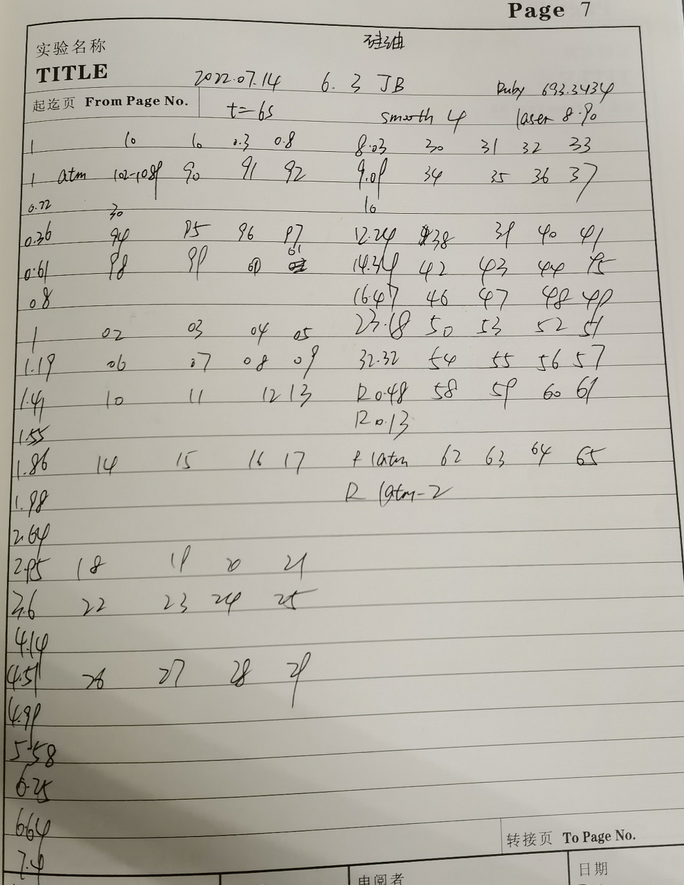 Page 7
实验名称 硅油
TITLE
2022.07.14 6.3 JB Ruby 693.3434
起迄页 From Page No. t=6s smooth 4 laser 8.90
1 10 10 0.3 0.8 8.03 30 31 32 33
1 atm 102-108 90 91 92 9.09 34 35 36 37
0.22 30 10
0.36 94 95 96 97 12.24 38 39 40 41
0.61 98 99 01 12 14.34 42 43 44 45
0.8 16.47 46 47 48 49
1 02 03 04 05 23.18 50 53 52 51
1.19 06 07 08 09 32.32 54 55 56 57
1.41 10 11 12 13 R 0.48 58 59 60 61
1.55 R 0.13
1.86 14 15 16 17 1atm 62 63 64 65
1.98 R 1atm-2
2.64
2.95 18 19 20 21
3.6 22 23 24 25
4.14
4.51 26 27 28 29
4.99
5.58
6.25
6.64
7.4
转接页 To Page No.
审阅者 日期